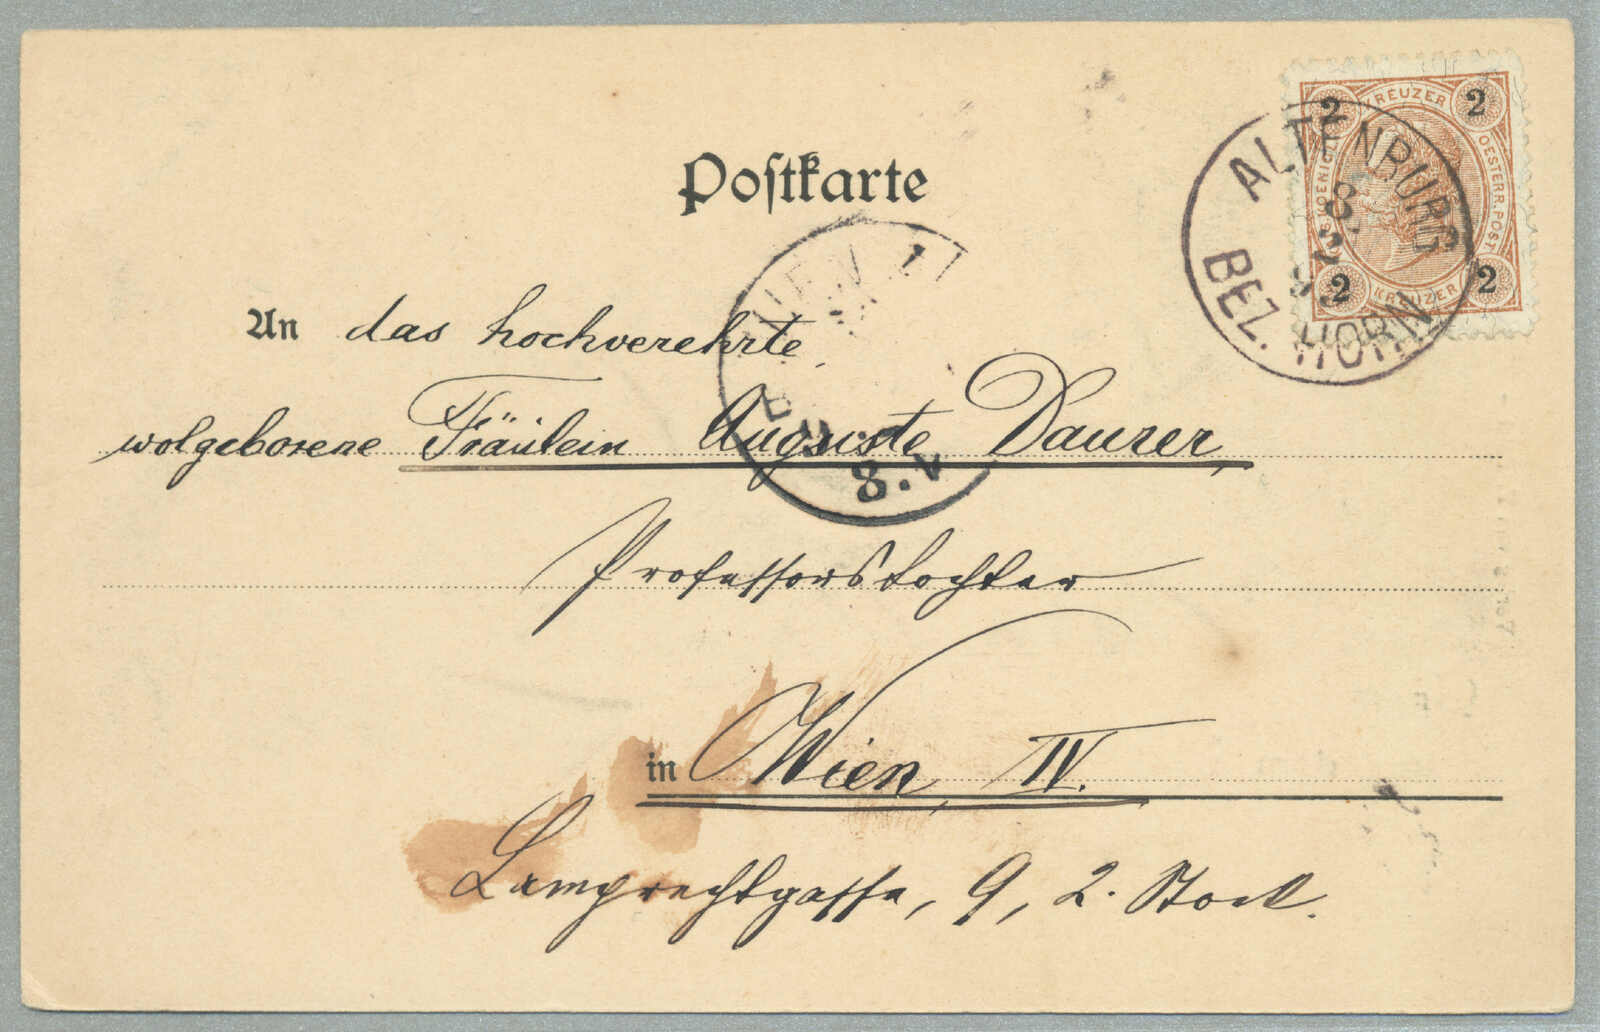 Postkarte
2 KREUZER 2
KOENIGL.
OESTERR. POST
2 KREUZER 2
ALTENBURG
BEZ. HORN
WIEN
8. V
An das hochverehrte
wolgeborene Fräulein Auguste Daurer,
Professorstochter
in Wien, IV.
Lamprechtgasse, 9, 2. Stock.